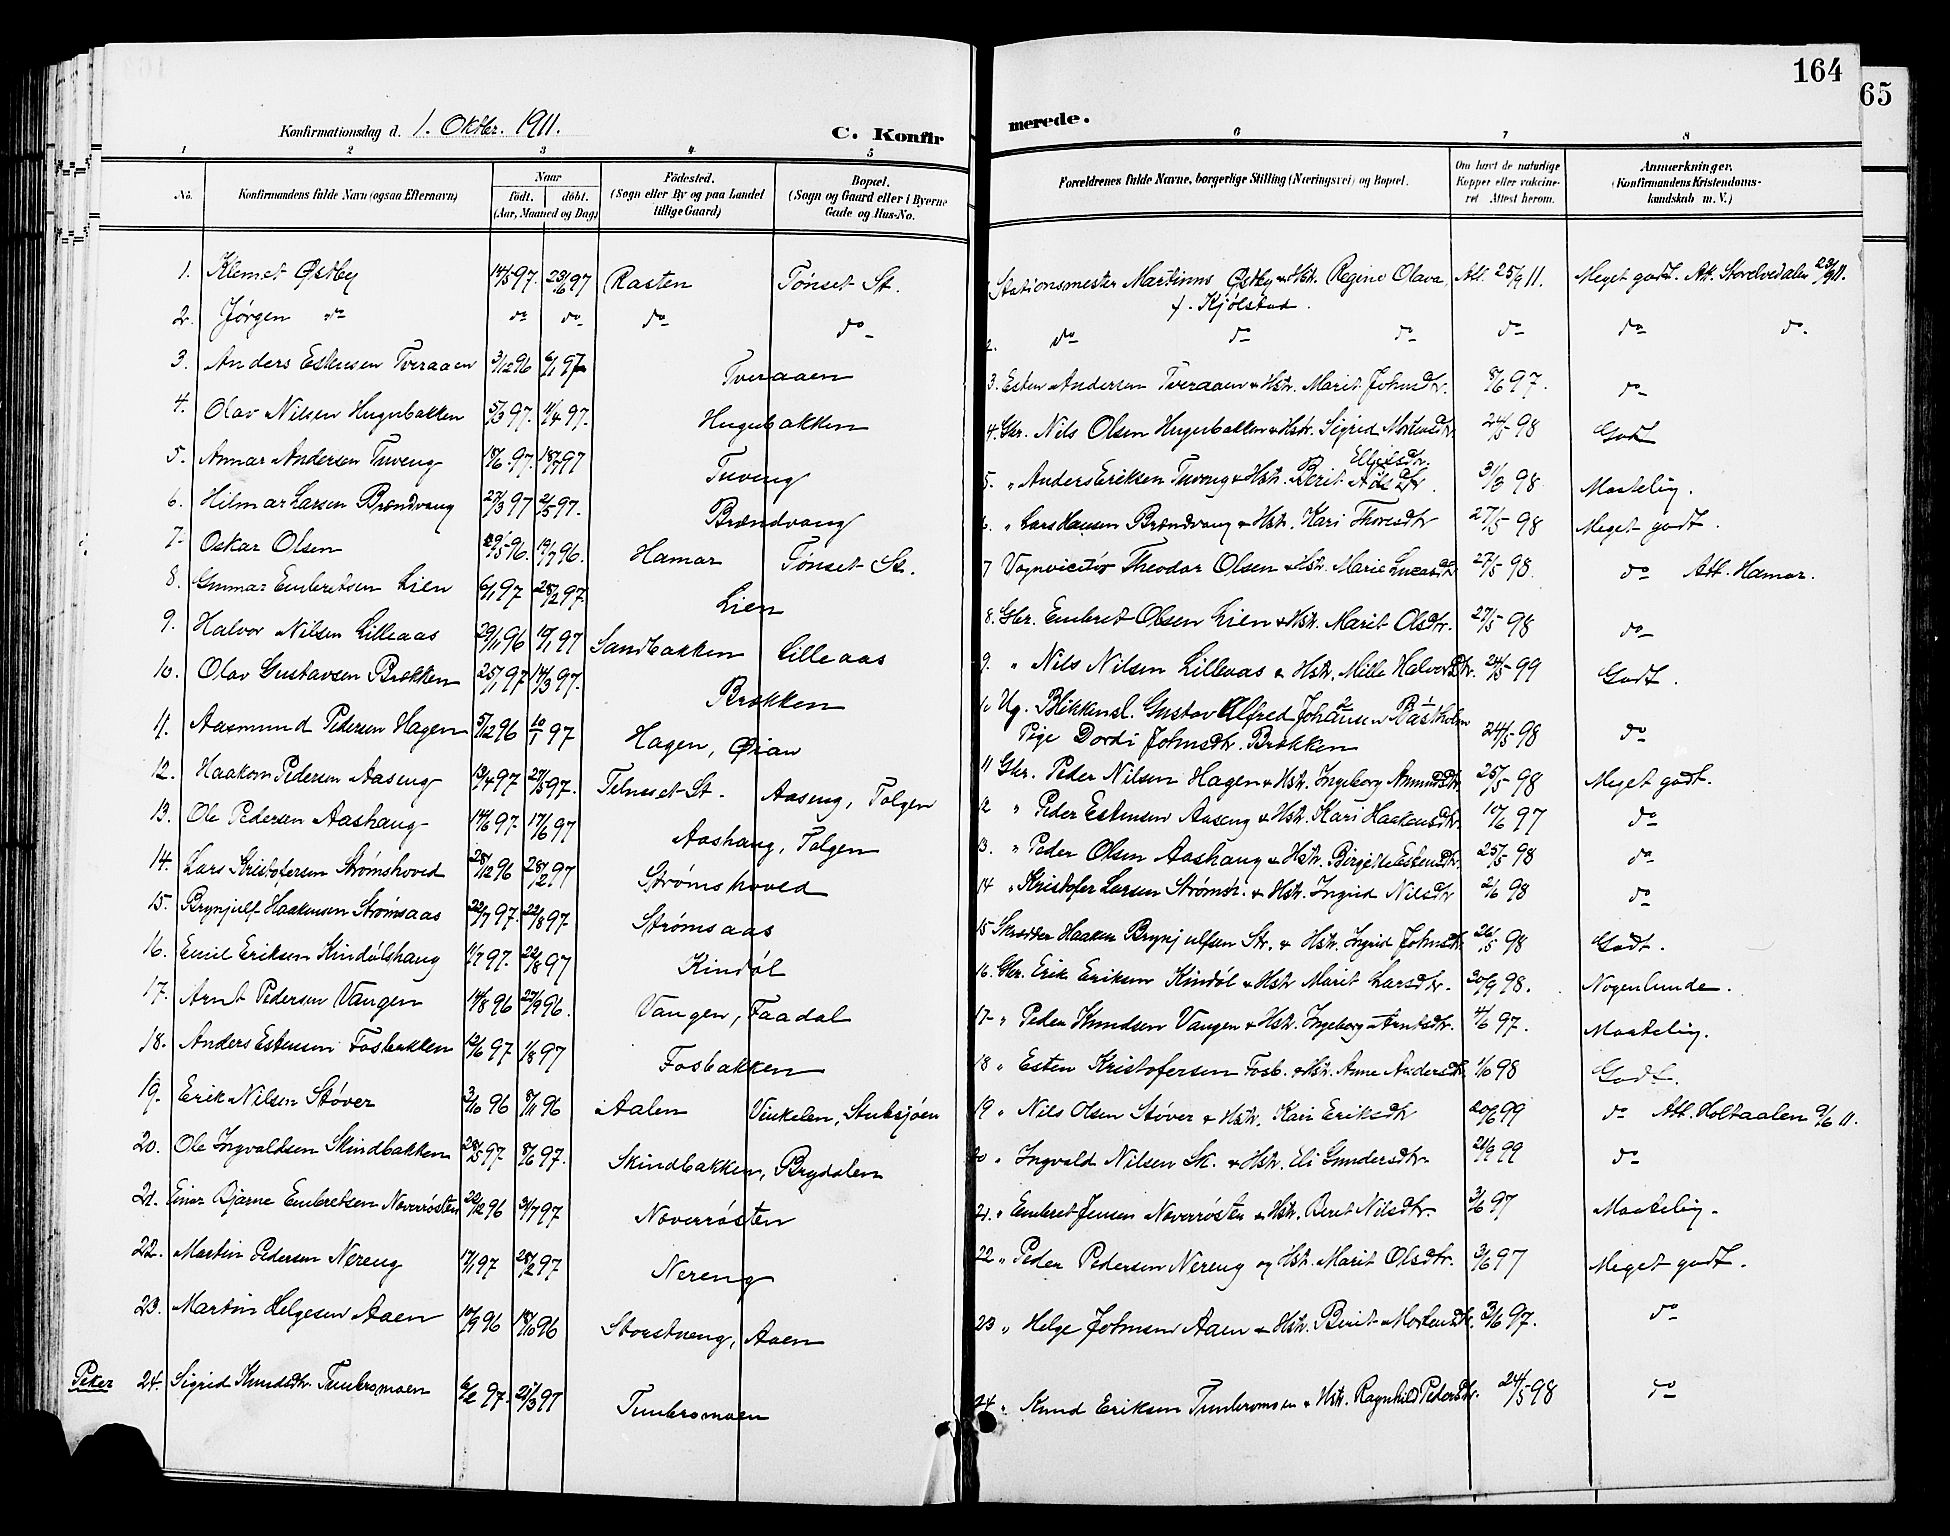 164
65
Konfirmationsdag d. 1. Oktbr. 1911.
C. Konfir
merede.
1 2 3 4 5 6 7 8
No.
Konfirmandens fulde Navn (ogsaa Efternavn)
Naar
født. døbt.
(Aar, Maaned og Dag)
Födested.
(Sogn eller By og paa Landet
tillige Gaard)
Bopæl.
(Sogn og Gaard eller i Byerne
Gade og Hus-No.
Forældrenes fulde Navne, borgerlige Stilling (Næringsvei) og Bopæl.
Om havt de naturlige
Kopper eller vakcine-
ret Attest herom.
Anmærkninger.
(Konfirmandens Kristendoms-
kundskab m. V.)
1. Klemet Østby 14/5 97. 23/6 97 Rasten Tønset St. Stationsmester Martinus Østby & Hstr. Regine Olava Att. 25/9 11. Meget godt. Att. Storelvedalen 23/9 11.
f. Kjølstad.
2. Jørgen do do do do do 2. do do do do do do
3. Anders Estensen Tveraaen 3/12 96 6/1 97 Tveraaen 3. Esten Andersen Tveraaen & Hstr. Marit Johnsdtr. 8/6 97. do
4. Olav Nilsen Hugubakken 5/3 97. 11/4 97. Hugubakken 4. Gbr. Nils Olsen Hugubakken & Hstr. Sigrid Mortensdtr. 24/5 98 Godt
5. Annar Andersen Tuveng 18/6 97. 18/7 97 Tuveng 5. " Anders Eriksen Tuveng & Hstr. Berit Ellefsdtr. 31/3 98 Maatelig.
6. Hilmar Larsen Brændvang 27/3 97 2/5 97. Brændvang 6. " Lars Hansen Brændvang & Hstr. Kari Thoresdtr 27/5 98 Meget godt.
7. Oskar Olsen 29/5 96. 19/7 96. Hamar Tønset St. 7 Vognvicitør Theodor Olsen & Hstr. Marie Lucasdtr 27/5 98. do Att. Hamar.
8. Gunnar Embretsen Lien 6/1 97 28/2 97. Lien 8. Gbr. Embret Olsen Lien & Hstr. Marit Olsdtr. 27/5 98 do
9. Halvor Nilsen Lilleaas 29/11 96 17/1 97 Sandbakken Lilleaas 9. " Nils Nilsen Lilleaas & Hstr. Mille Halvorsdtr. 24/5 99 Godt.
10. Olav Gustavsen Brokken 25/1 97 14/3 97. Brokken 10 Ug. Blikkensl. Gustav Alfred Johansen Bastholm
Pige Dordi Johnsdtr. Brokken 24/5 98 do
11. Aasmund Pedersen Hagen 5/12 96 10/1 97 Hagen, Øian 11 Gbr. Peder Nilsen Hagen & Hstr. Ingeborg Amundsdtr. 25/5 98 Meget godt.
12. Haakon Pedersen Aaseng 13/4 97 27/5 97. Telneset St. Aaseng, Tolgen 12 " Peder Estensen Aaseng & Hstr. Kari Haakensdtr. 10/6 97 do
13. Ole Pedersen Aashaug 14/6 97. 17/6 97 Aashaug, Tolgen 13. " Peder Olsen Aashaug & Hstr. Birgitte Estensdtr. 25/5 98 do
14. Lars Kristofersen Strømshoved 28/12 96 28/2 97 Strømshoved 14 " Kristofer Larsen Strømsh. & Hstr. Ingrid Nilsdtr 2/6 98 do
15. Brynjulf Haakensen Strømsaas 22/7 97. 22/8 97. Strømsaas 15 Skrædder Haaken Brynjulfsen Str. & Hstr. Ingrid Johnsdtr 26/5 98 Godt.
16. Emil Eriksen Kindølshaug 11/7 97. 22/8 97 Kindøl 16. Gbr. Erik Eriksen Kindøl & Hstr Marit Larsdtr. 20/9 98. Nogenlunde.
17. Arnt Pedersen Vangen 14/8 96 27/9 96. Vangen, Faadal 17 " Peder Knudsen Vangen & Hstr. Ingeborg Arntsdtr. 4/6 97. Maatelig.
18. Anders Estensen Fosbakken 12/6 97 1/8 97 Fosbakken 18 " Esten Kristofersen Fosb. & Hstr. Anne Andersdtr. 1/6 98 Godt.
19. Erik Nilsen Støver 3/10 96 8/11 96 Aalen Vinkelen, Stubsjøen 19 " Nils Olsen Støver & Hstr. Kari Eriksdtr 20/6 99 do Att. Holtaalen 9/6 11.
20. Ole Ingvaldsen Skindbakken 28/5 97 8/6 97. Skindbakken, Brydalen 20 " Ingvald Nilsen Sk. & Hstr. Eli Gundersdtr. 21/9 99 do
21. Einar Bjarne Embretsen Noverrøsten 22/12 96 31/7 97 Noverrøsten 21. " Embret Jensen Noverrøsten & Hstr. Berit Nilsdtr. 3/6 97 Maatelig.
22. Martin Pedersen Nereng 17/1 97 28/2 97 Nereng 22 " Peder Pedersen Nereng og Hstr. Marit Olsdtr. 3/6 97 Meget godt.
23. Martin Helgesen Aaen 10/9 96 18/10 96 Storstueng, Aaen 23 " Helge Johnsen Aaen & Hstr. Berit Mortensdtr. 3/6 97. do
Piker 24. Sigrid Knudsdtr. Tunbromoen 6/2 97. 21/3 97 Tunbromoen 24 " Knud Eriksen Tunbromoen & Hstr. Ragnhild Pedersdtr. 24/5 98 do